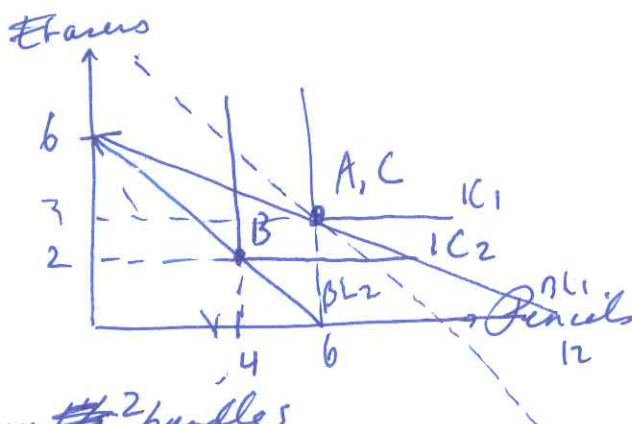 Erasers
6
A, C
3
IC1
B
IC2
2
BL2
BL1.
Pencils
4
6
12
2 bundles